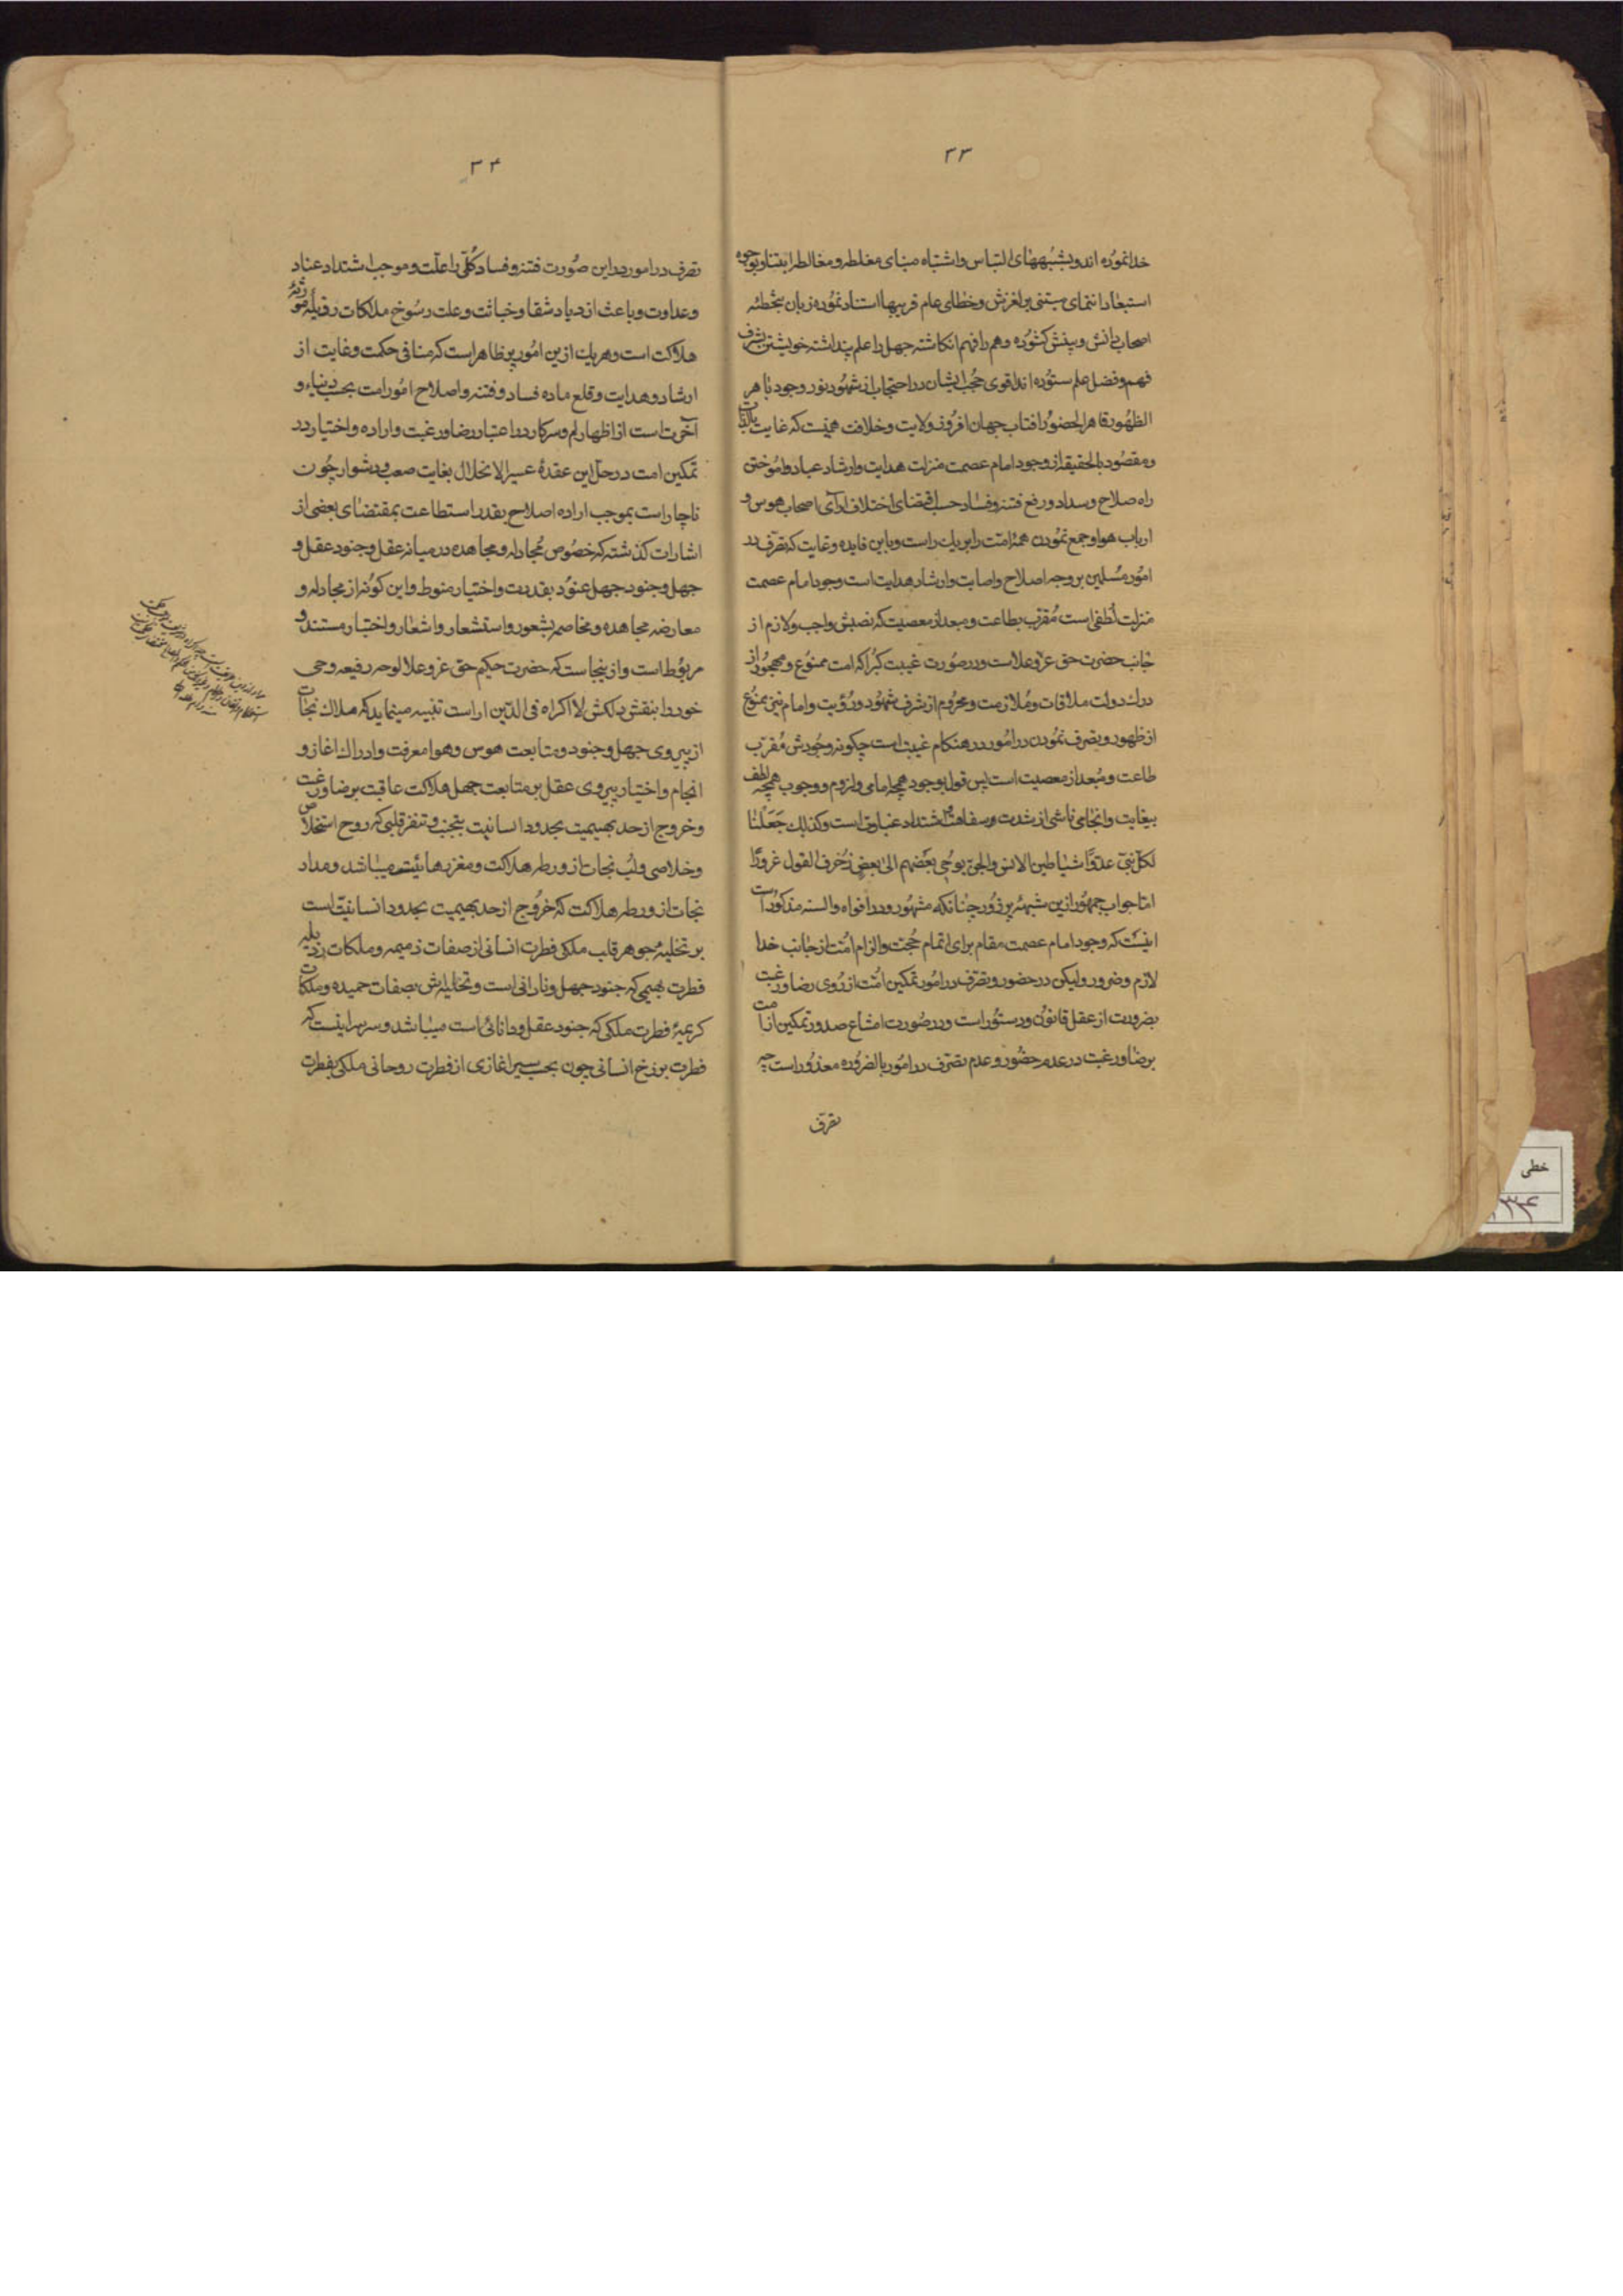 ۳۳
خدا نموده اند و بشبههای التباس و اشتباه مبنای مغلطه و مغالطه را بقتاو بوجوه
استبعاد انتمای مبتنی بر لغزش و خطای عام فریبها استناد نموده زبان بتخطئه
اصحاب دانش و بینش کشوده و هم را فهم انکاشته جهل را علم پنداشته خویشتن بشرف
فهم و فضل علم ستوده اند اقوی حجب ایشان در احتجاب از شهود نور وجود باهر
الظهور قاهر الحضور افتاب جهان افروز ولایت و خلافت همینست که غایت بالذات
و مقصود بالحقیقه از وجود امام عصمت منزلت هدایت و ارشاد عباد و اموختن
راه صلاح و سداد و رفع فتنه و فساد حسب اقتضای اختلاف ارای اصحاب هوس و
ارباب هوا و جمع نمودن همه امت را بر یک راست و باین فایده و غایت که تصرف در
امور مسلمین بر وجه اصلاح و اصابت و ارشاد هدایت است وجود امام عصمت
منزلت لطفی است مقرب بطاعت و مبعد از معصیت که نصبش واجب و لازم از
جانب حضرت حق عز و علاست و در صورت غیبت کبرا که امت ممنوع و مهجور از
درک دولت ملاقات و ملازمت و محروم از شرف شهود و رؤیت و امام نیز ممنوع
از ظهور و تصرف نمودن در امور در هنکام غیبت است چکونه وجودش مقرب
طاعت و مبعد از معصیت است پس قول بوجود همچه امامی و لزوم و وجوب همچه لطف
بیغایت و انجامی ناشی از شدت و سفاهت و اشتداد غباوتی است و کذلک جعلنا
لکل نبی عدوا شیاطین الانس و الجن یوحی بعضهم الی بعض زخرف القول غرورا
اما جواب جمهور ازین شبهه پر زور چنانکه مشهور و در افواه و السنه مذکور است
اینست که وجود امام عصمت مقام برای اتمام حجت و الزام امت از جانب خدا
لازم و ضرور ولیکن در حضور و تصرف در امور تمکین امت از روی رضا و رغبت
بضرورت از عقل قانون و دستور است و در صورت امتناع صدور تمکین از امت
برضا و رغبت در عدم حضور و عدم تصرف در امور بالضروره معذور است چه
تصرف
۳۴
تصرف در امور در این صورت فتنه و فساد کلی را علت و موجب اشتداد عناد
و عداوت و باعث ازدیاد شقا و خباثت و علت رسوخ ملکات رذیله مورثه
هلاکت است و هر یک ازین امور پر ظاهر است که منافی حکمت و غایت از
ارشاد و هدایت و قلع ماده فساد و فتنه و اصلاح امور امت بحسب دنیا و
آخرت است از اظهار لم و سر کار در اعتبار رضا و رغبت و اراده و اختیار در
تمکین امت در حل این عقده عسیر الانحلال بغایت صعب و دشوار چون
ناچار است بموجب اراده اصلاح بقدر استطاعت بمقتضای بعضی از
اشارات کذشته که خصوص مجادله و مجاهده در میانه عقل و جنود عقل و
جهل و جنود جهل عنود بقدرت و اختیار منوط و این کونه از مجادله و
معارضه مجاهده و مخاصمه بشعور و استشعار و اشعار و اختیار مستند و
مربوط است و از ینجاست که حضرت حکیم حق عز و علا لوحه رفیعه وحی
خود را بنقش دلکش لا اکراه فی الدین اراست تنبیه مینماید که ملاک نجات
از پیروی جهل و جنود و متابعت هوس و هوا معرفت و ادراک اغاز و
انجام و اختیار پیروی عقل بر متابعت جهل هلاکت عاقبت برضا و رغبت
و خروج از حد بهیمیت بحدود انسانیت بتجنب و تنفر قلبی که روح استخلاص
و خلاصی و لب نجات از ورطه هلاکت و مغز رهائیست میباشد و مداد
نجات از ورطه هلاکت که خروج از حد بهیمیت بحدود انسانیت است
بر تخلیه جوهر قلب ملکی فطرت انسانی از صفات ذمیمه و ملکات رذیله
فطرت بهیمی که جنود جهل و نادانی است و تحلیه اش بصفات حمیده و ملکات
کریمه فطرت ملکی که جنود عقل و دانائی است میباشد و سر سر اینست که
فطرت برزخ انسانی چون بحسب سیر اغازی از فطرت روحانی ملکی بفطرت
خطی